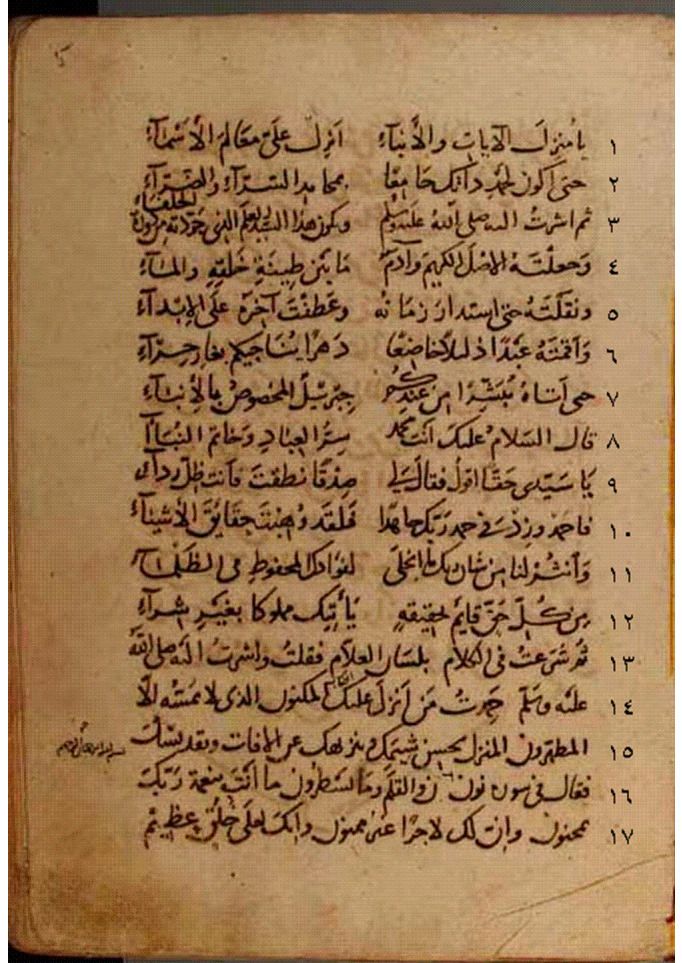 ١ يا منزل الآيات والأنباء انزل علىّ معالم الأسماء
٢ حتى اكون لحمد ذاتك جامعا بمحامد السّرآء والضرآء
٣ ثم اشرت اليه صلى الله عليه وسلم ويكون هذا السّيد العلم الذي جردته من دورة الخلفاء
٤ وجعلته الاصل الكريم وآدم ما بين طينة خلقه والمآء
٥ ونقلته حتى استدار زمانه وعطفت آخره على الإبدآء
٦ وأقمته عبدًا ذليلا خاضعًا دهرًا يناجيكم بغار حرآء
٧ حتى أتاه مبشّرًا من عندكم جبرئيل المخصوص بالأنبآء
٨ قال السلام عليك انت محمد سرّ العباد وخاتم النبآء
٩ يا سيّدى حقّا اقول فقال لي صدقًا نطقت فأنت ظلّ ردآى
١٠ فاحمد وزد في حمد ربّك جاهدًا فلقد وهبت حقايق الأشيآء
١١ وأنثر لنا من شان ربك ما انجلى لفؤادك المحفوظ فى الظلمآء
١٢ من كلّ حقّ قايم بحقيقة يأتيك مملوكا بغير شرآء
١٣ ثم شرعت فى الكلام بلسان العلام فقلت واشرت اليه صلى الله
١٤ عليه وسلم حمدت من أنزل عليك الكتاب المكنون الذى لا يمسّه الّا
١٥ المطهرون المنزل بحسن شيمك وتنزيهك عن الافات وتقديسك
١٦ فقال فى سورة نون ن والقلم وما يسطرون ما أنت بنعمة ربّك
١٧ بمجنون وإن لك لاجرًا غير ممنون وإنك لعلى خلق عظيم